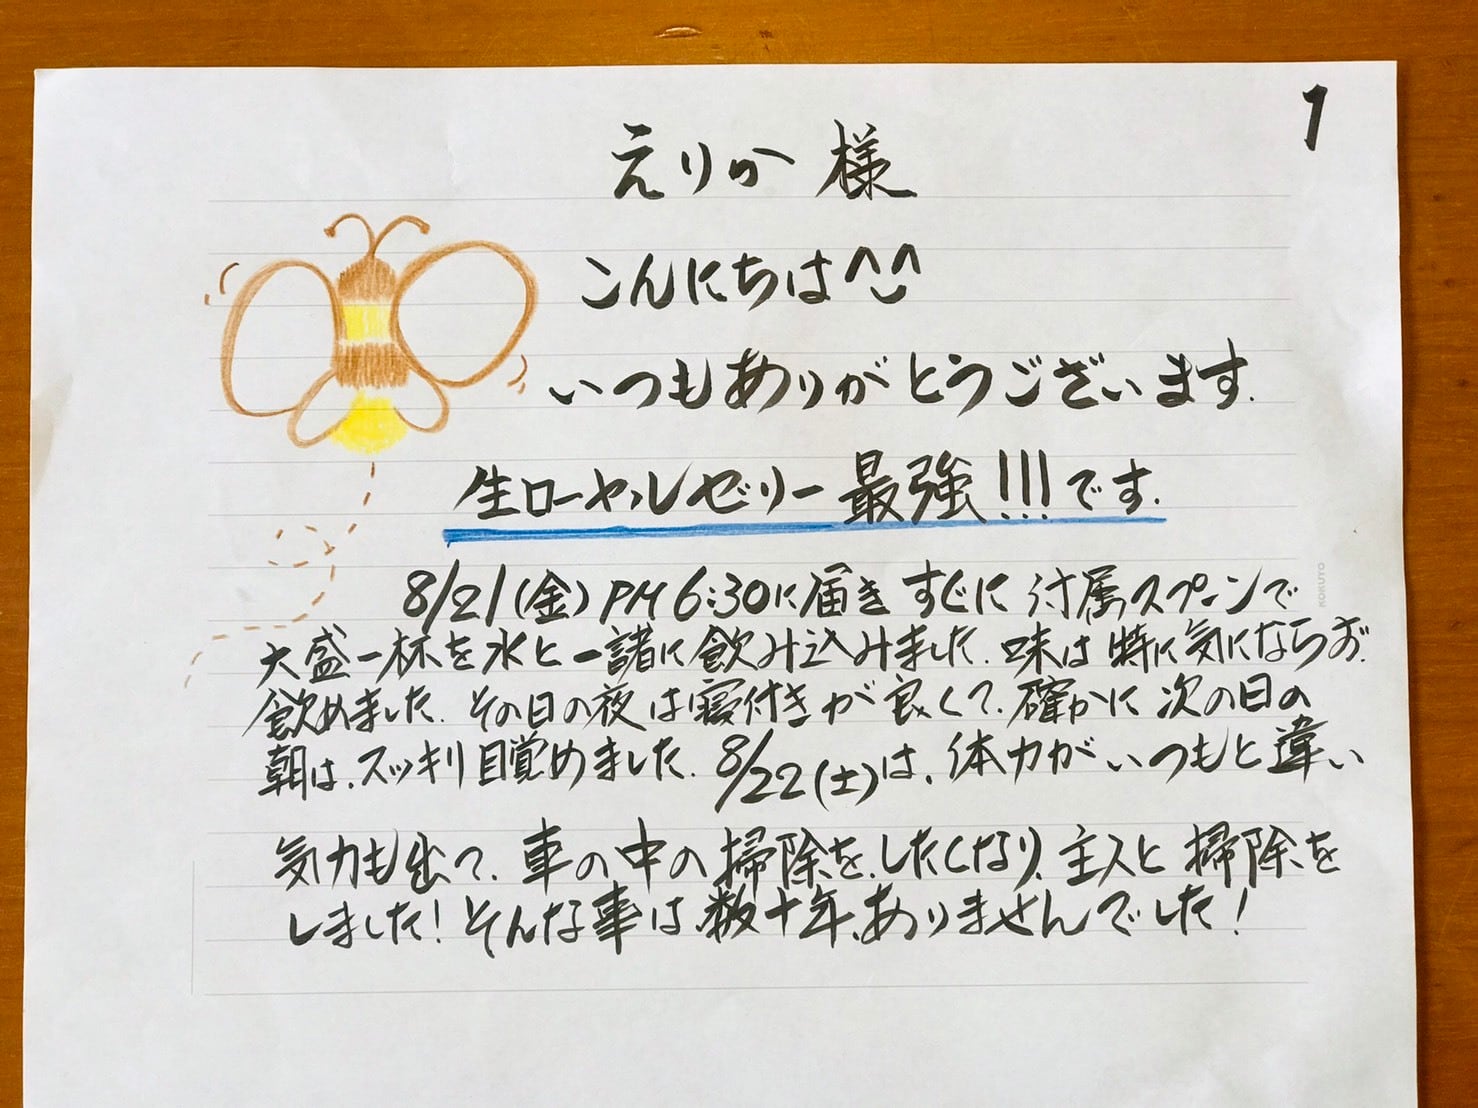 1
えりか 様
こんにちは^^
いつもありがとうございます.
生ローヤルゼリー最強!!!です.
8/21(金)PM6:30に届き すぐに 付属スプーンで
大盛一杯を水と一諸に飲み込みました.味は特に気にならず.
飲めました.その日の夜は寝付きが良くて.確かに次の日の
朝は.スッキリ目覚めました.8/22(土)は.体力がいつもと違い
気力も出て.車の中の掃除を.したくなり.主人と掃除を
しました!そんな事は.数十年.ありませんでした!
KOKUYO